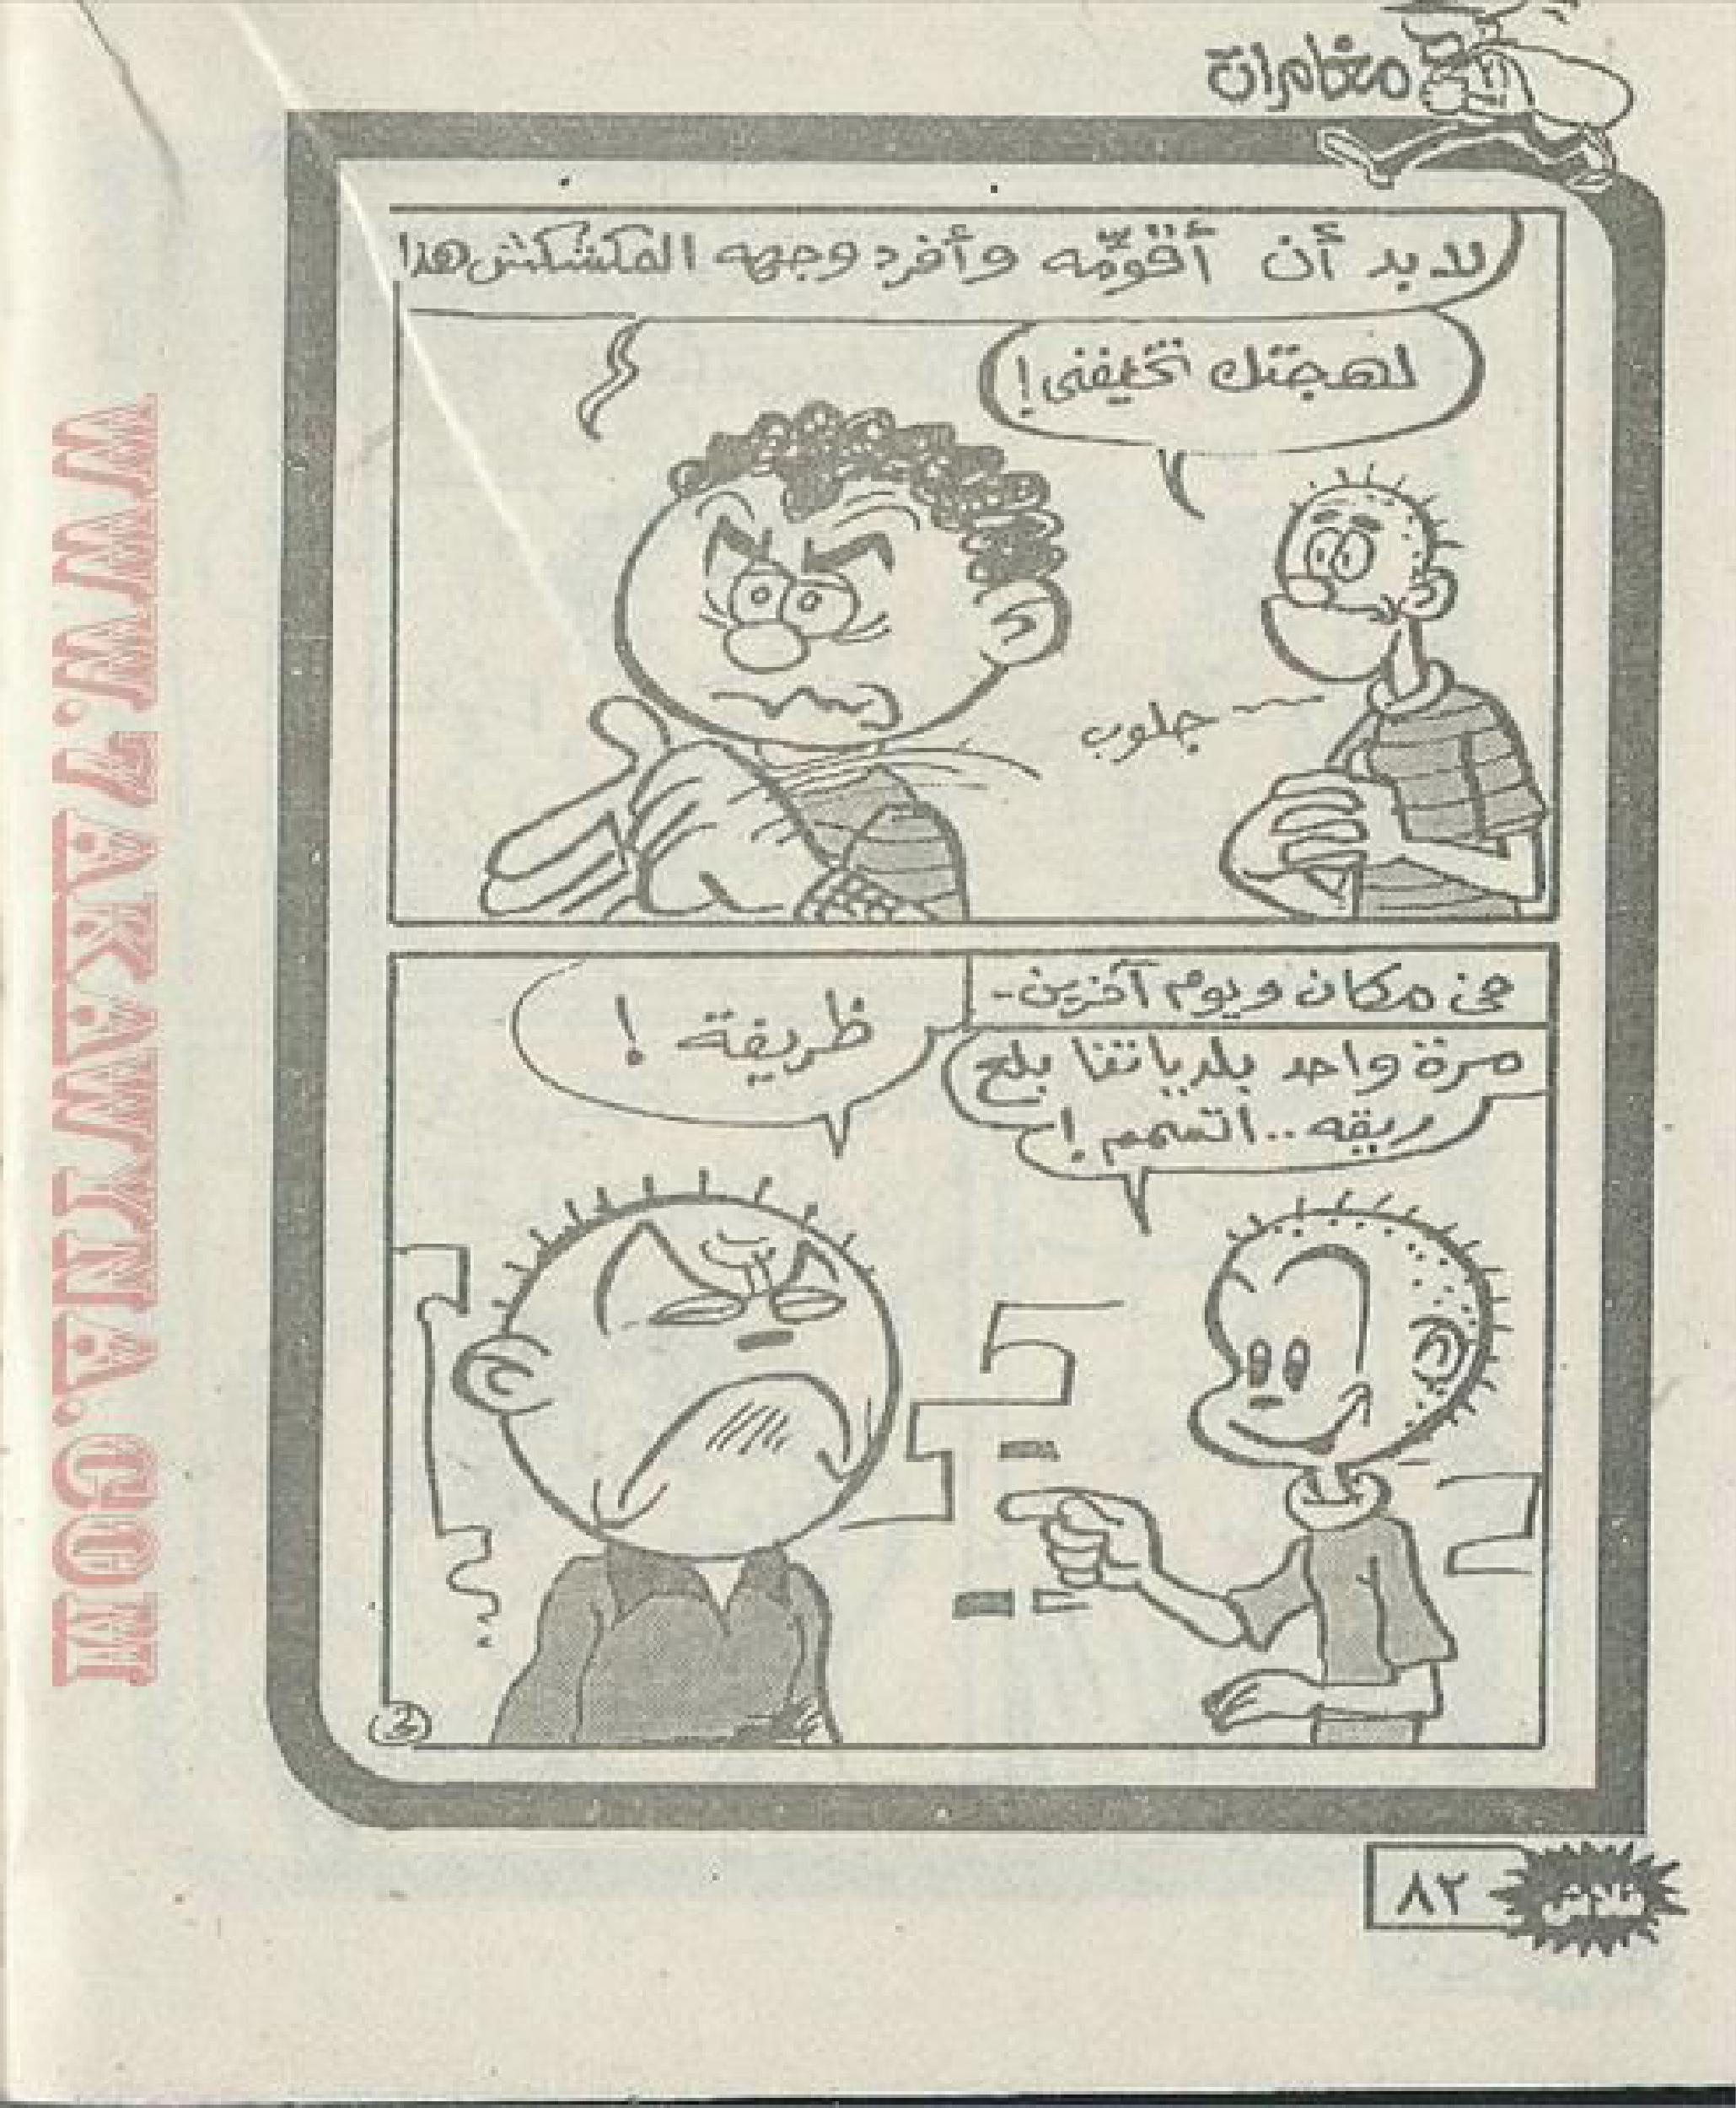 مغامرات
لا بد أن أقوّمه وأفرد وجهه المكشكش هذا
لهجتك تخيفنى!
جلوب
فى مكان ويوم آخرين-
مرة واحد بلدياتنا بلع
ريقه.. اتسمم!
ظريفة !
٨٢
فلاش
WWW.7AKAWTNA.COM